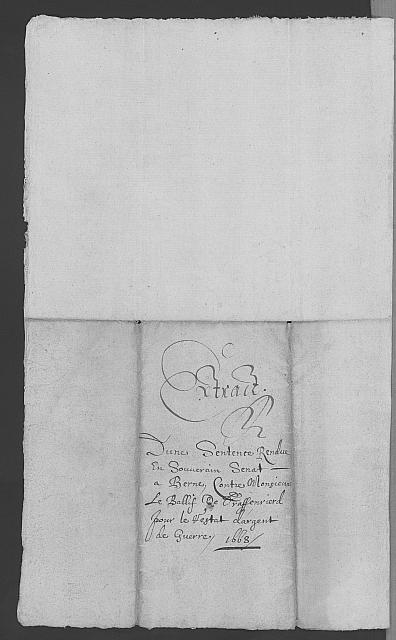 Extrait.
Dune Sentence Rendue
En Souverain Senat
a Berne, Contre Monsieur
Le Ballif De Graffenrierd
pour le Restat dargent
de Guerre, 1668